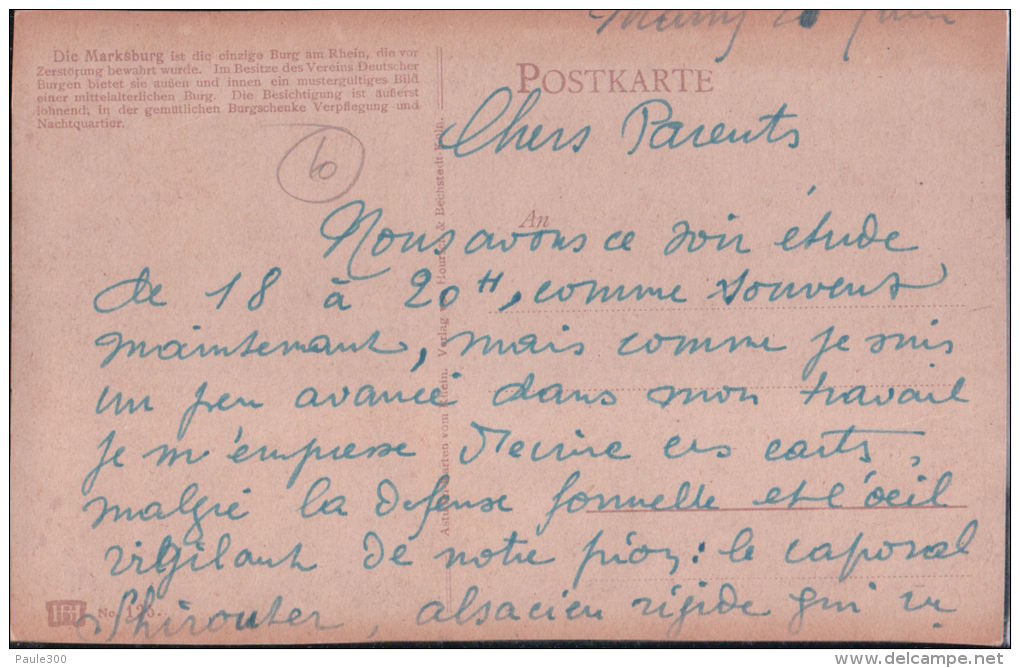 Die Marksburg ist die einzige Burg am Rhein, die vor
Zerstörung bewahrt wurde. Im Besitze des Vereins Deutscher
Burgen bietet sie außen und innen ein mustergültiges Bild
einer mittelalterlichen Burg. Die Besichtigung ist äußerst
lohnend, in der gemütlichen Burgschenke Verpflegung und
Nachtquartier.
POSTKARTE
Chers Parents
6
An
Nous avons ce soir étude
de 18 à 20H, comme souvent
maintenant, mais comme je suis
un peu avancé dans mon travail
je m'empresse d'ecrire ces carts,
malgré la defense formelle et l'oeil
vigilant de notre pion: le caporal
alsacien rigide qui
karten vom Rhein. Verlag & Bechstedt Köln.
HB No. 123.
Paule300
delcampe.net